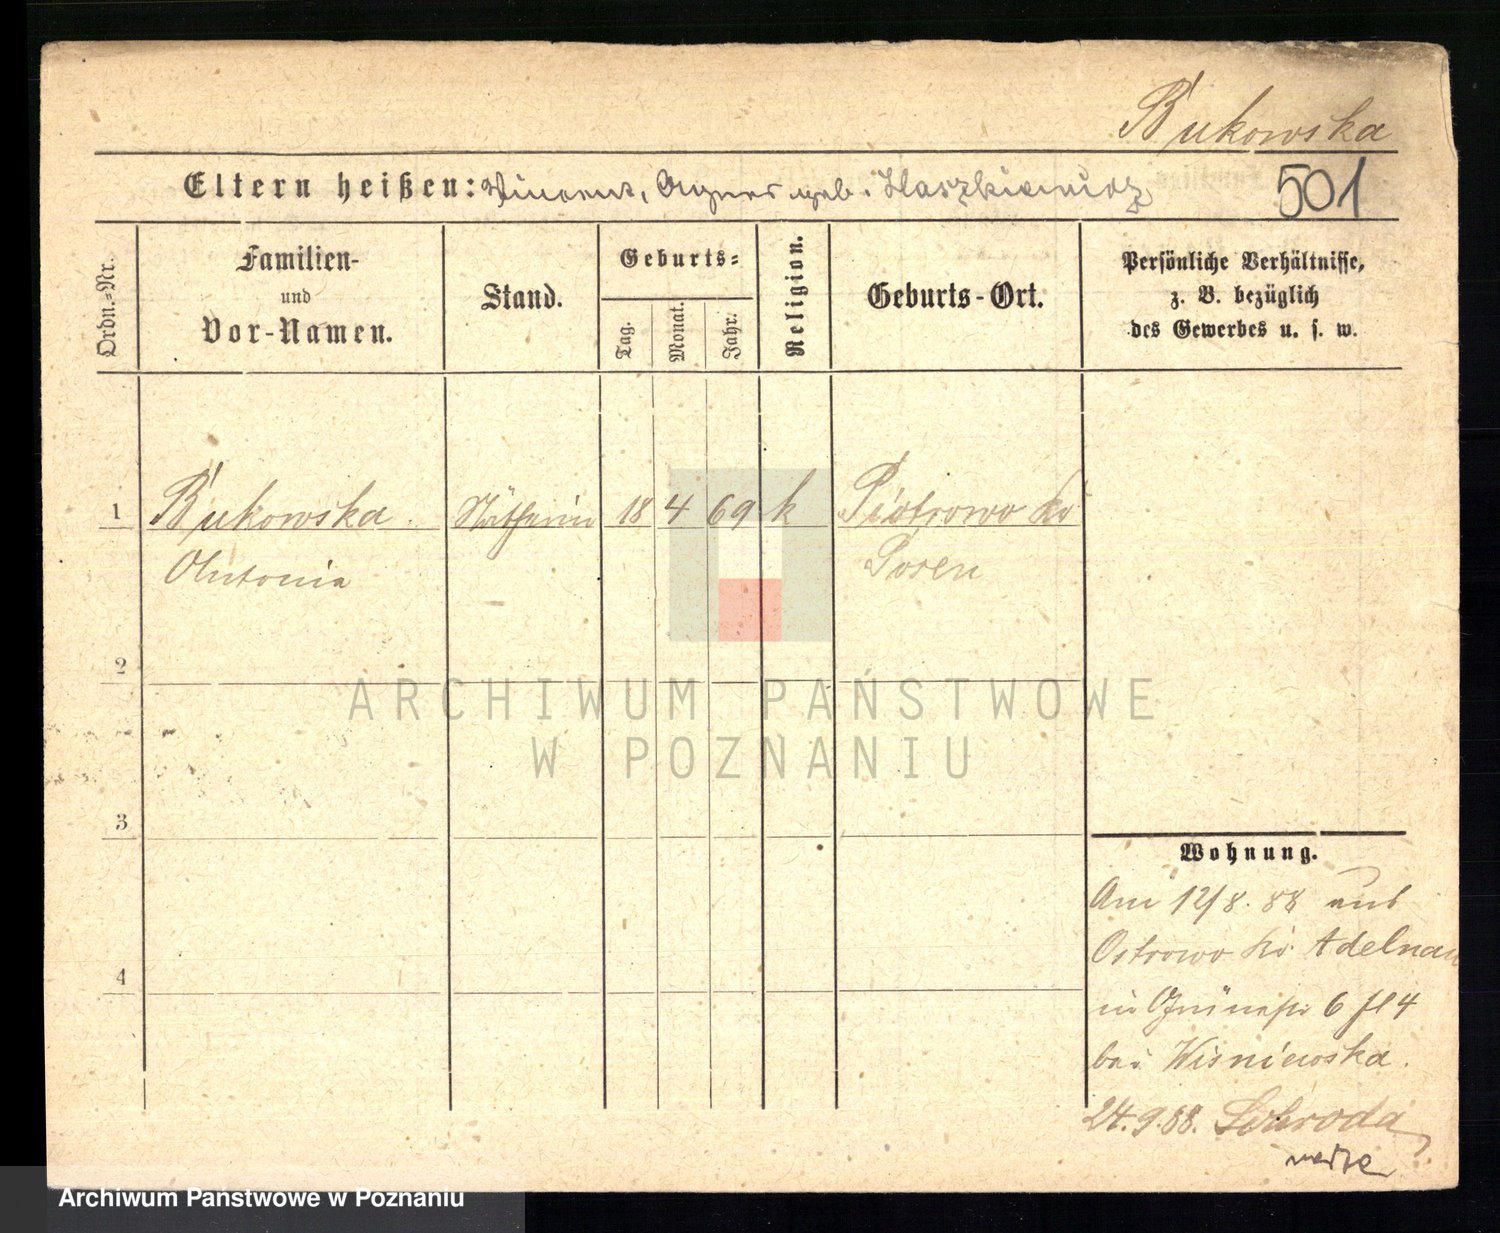 Bukowska
Eltern heißen: Vincent, Agnes geb. Staszkiewicz
501
Ordn.-Nr.
Familien-
und
Vor-Namen.
Stand.
Geburts-
Tag.
Monat.
Jahr.
Religion.
Geburts-Ort.
Persönliche Verhältnisse,
z. B. bezüglich
des Gewerbes u. s. w.
1 Bukowska Nätherin 18 4 69 k Piotrowo Kr
Antonia Posen
2
3
4
Wohnung.
Am 12/8. 88 aus
Ostrowo Kr Adelnau
in 6 4
bei Wisniewska.
24.9.88. Schroda
ARCHIWUM PAŃSTWOWE
W POZNANIU
Archiwum Państwowe w Poznaniu